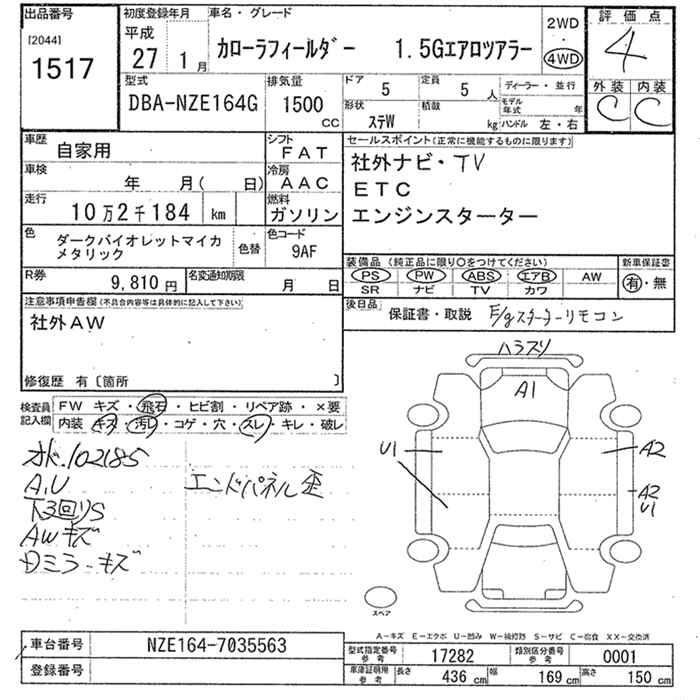 出品番号
[2044]
1517
初度登録年月
平成
27 1月
車名・グレード
カローラフィールダー 1.5Gエアロツアラー
2WD
4WD
評価点
4
外装 内装
C C
型式
DBA-NZE164G
排気量
1500
CC
ドア 5
定員 5 人
形状 ステW
積載 kg
ディーラー・並行
モデル年式 年
ハンドル 左・右
車歴 自家用
シフト FAT
車検 年 月( 日)
冷房 AAC
走行 10万2千184 km
燃料 ガソリン
色 ダークバイオレットマイカ
メタリック
色替
色コード 9AF
R券 9,810 円
名変通知期限 月 日
セールスポイント(正常に機能するものに限ります)
社外ナビ・TV
ETC
エンジンスターター
装備品(純正品に限り○をつけてください)
PS PW ABS エアB AW
SR ナビ TV カワ
新車保証書
有・無
後日品
保証書・取説 E/gスターターリモコン
注意事項申告欄(不具合内容等は具体的に記入して下さい)
社外AW
修復歴 有〔箇所 〕
検査員
記入欄
FW キズ・飛石・ヒビ割・リペア跡・×要
内装・キズ・汚レ・コゲ・穴・スレ・キレ・破レ
オド.102185
A,U
下3回りS
AWキズ
Dミラーキズ
エンドパネル歪
ハラスリ
A1
U1
A2
A2
U1
スペア
A-キズ E-エクボ U-凹み W-補修跡 S-サビ C-腐食 XX-交換済
車台番号 NZE164-7035563
登録番号
型式指定番号
参考
17282
類別区分番号
参考
0001
車庫証明用
参考
長さ 436 cm
幅 169 cm
高さ 150 cm